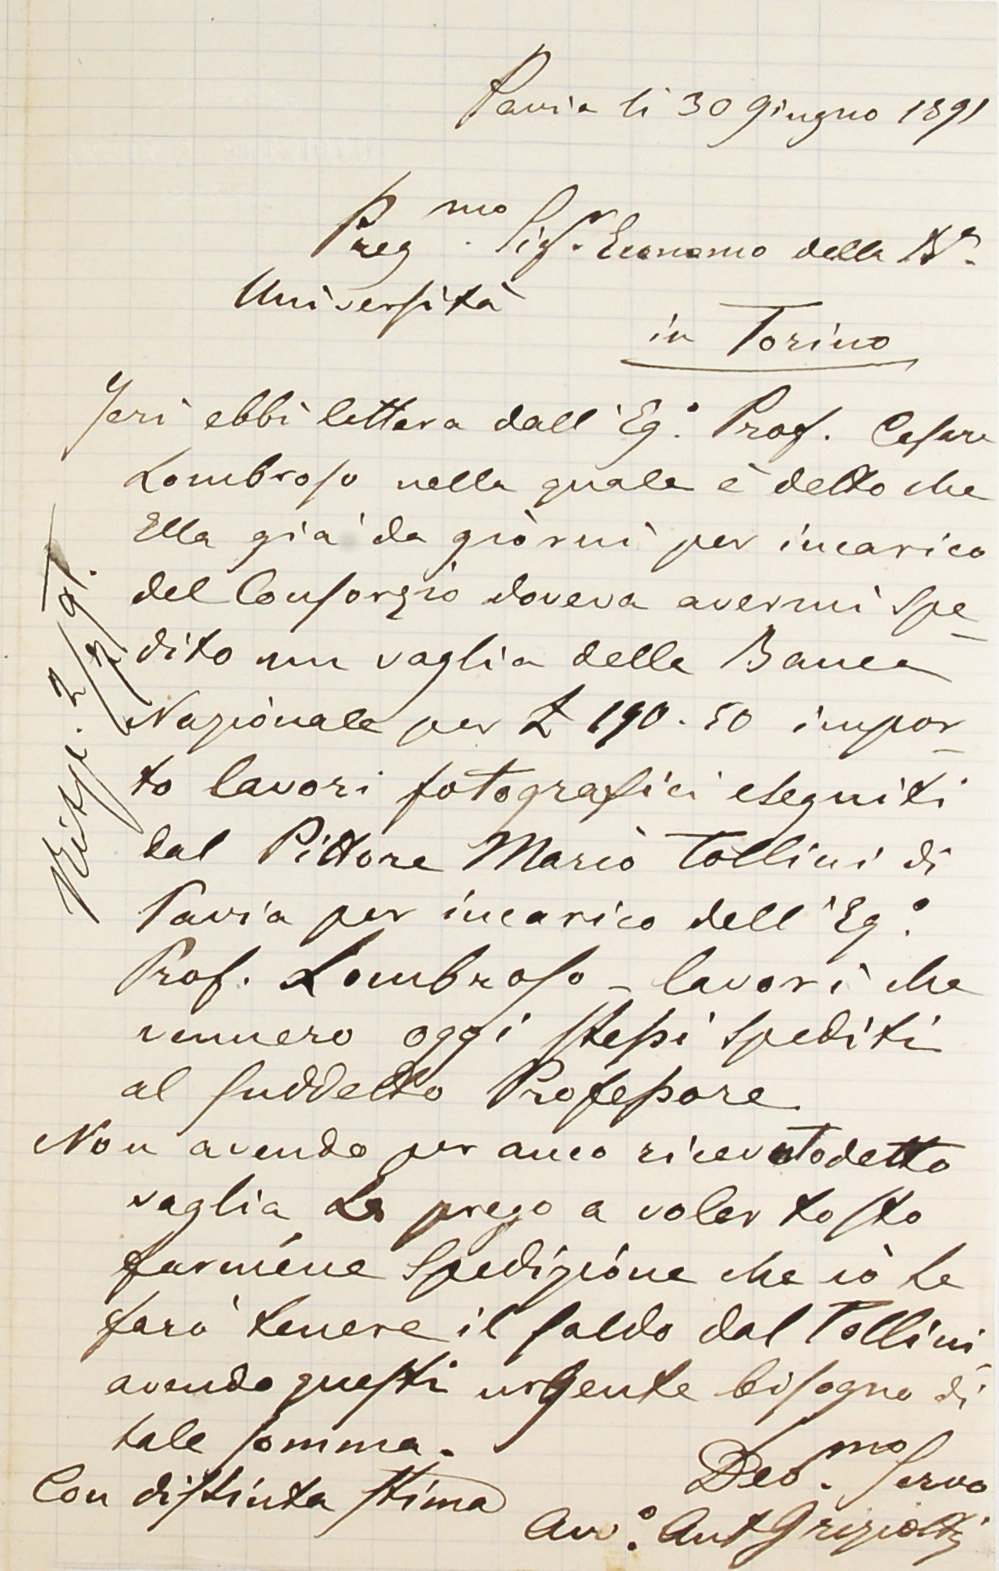 Pavia li 30 Giugno 1891
Preg.mo Sigr. Economo della Ra.
Università
in Torino
Jeri ebbi lettera dall'Ego. Prof. Cesare
Lombroso nella quale è detto che
Ella già da giorni per incarico
del Consorzio doveva avermi spe_
dito un vaglia della Banca
Nazionale per £ 190.50 impor_
to lavori fotografici eseguiti
dal Pittore Mario Tollini di
Pavia per incarico dell'Ego.
Prof. Lombroso _ lavori che
vennero oggi stessi spediti
al suddetto Professore
Non avendo per anco ricevuto detto
vaglia La prego a voler tosto
farmene spedizione che io Le
farò tenere il saldo dal Tollini
avendo questi urgente bisogno di
tale somma.
Con distinta stima
Deo.mo Servo
Avvo. Ant Griziotti
2/7 91.